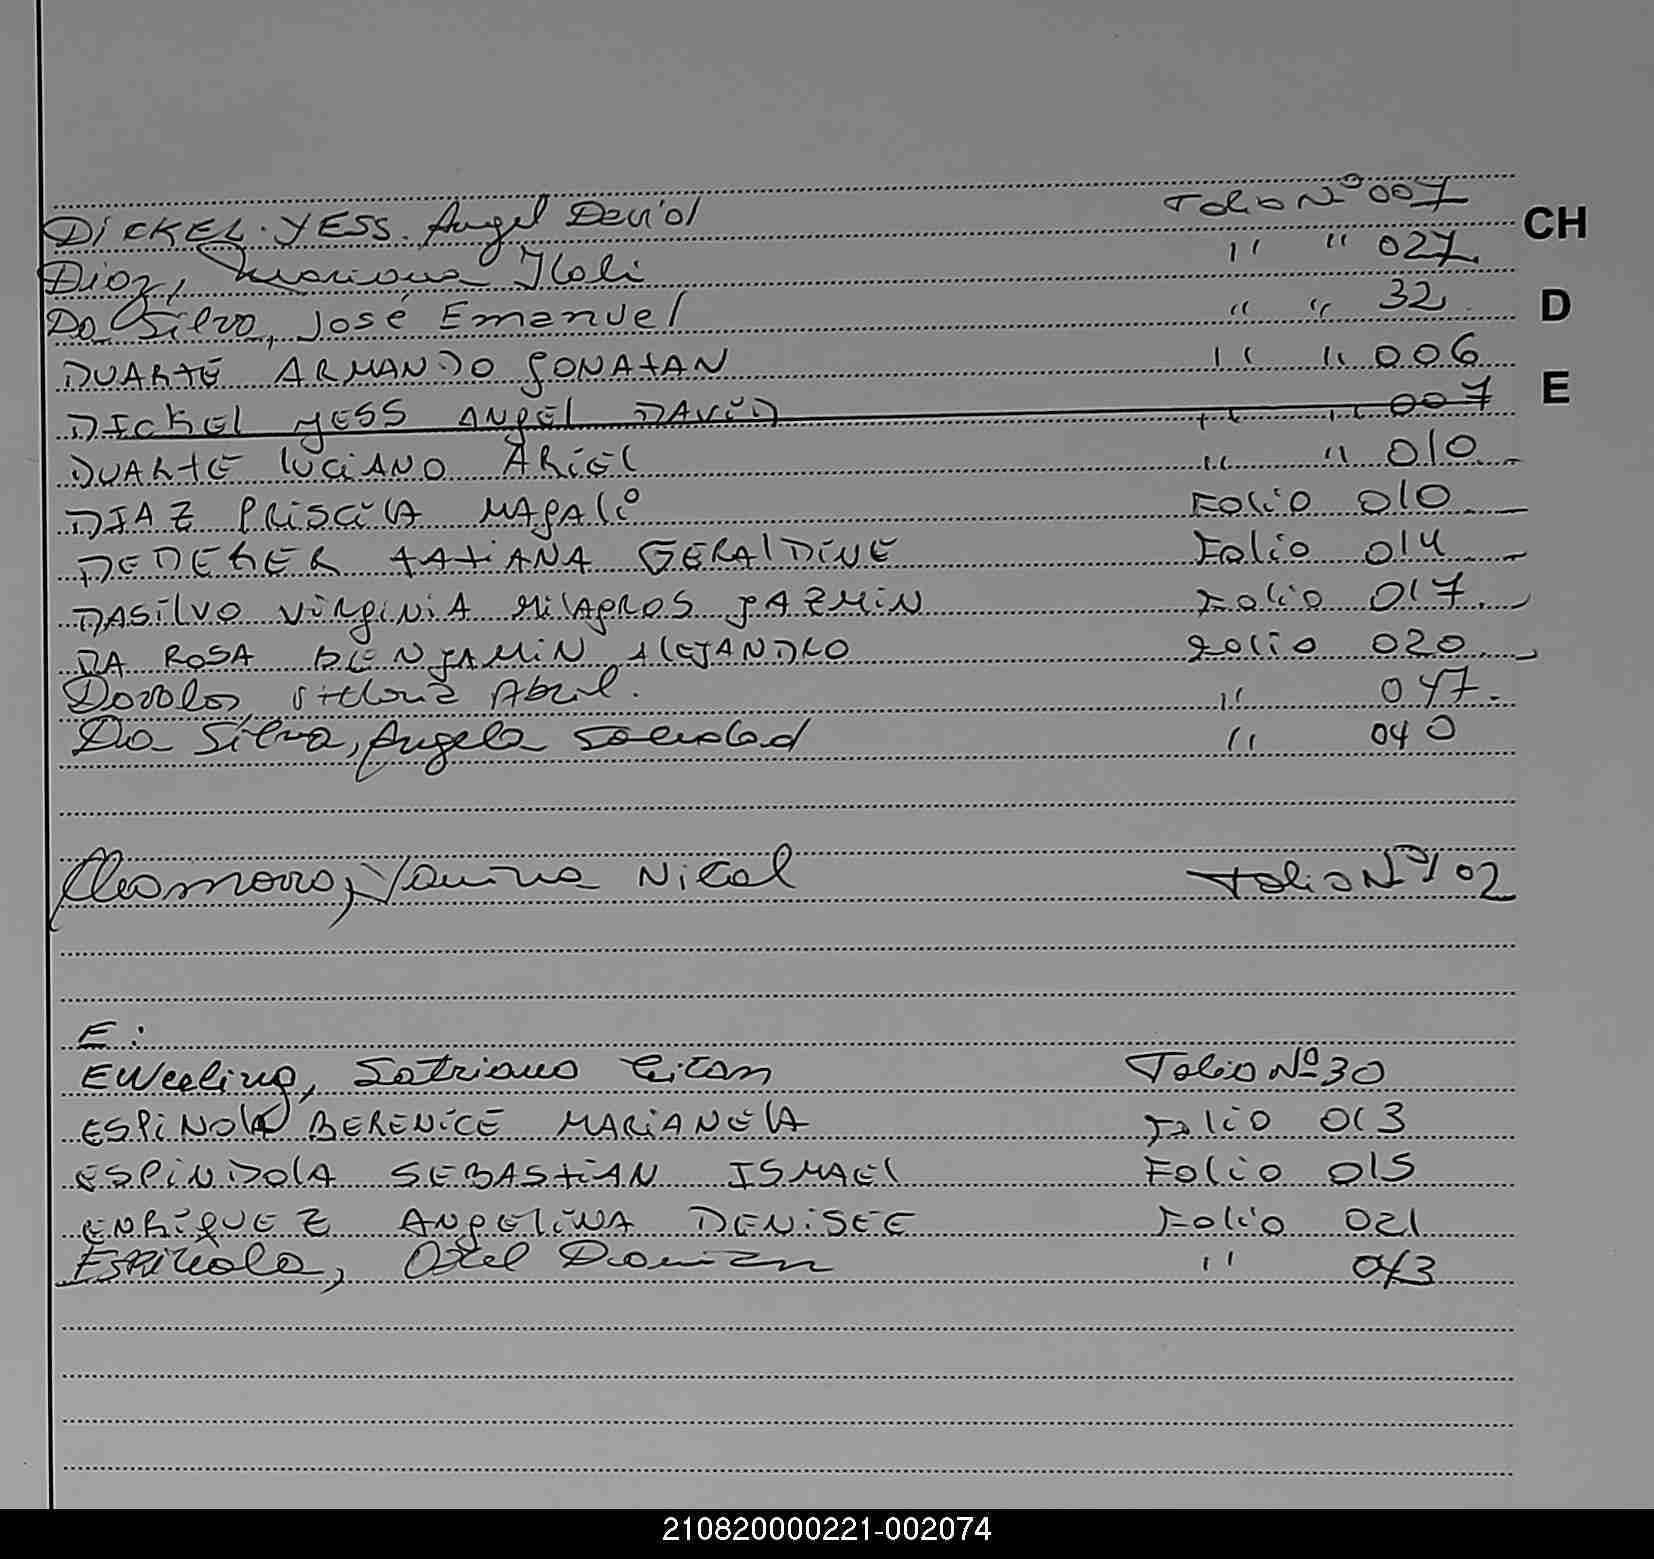 DICKEL. YESS. Angel David Folio Nº 007
CH
Diaz, Mariana Itati " " 027
Da Silva, José Emanuel " " 32
D
DUARTE ARMANDO JONATAN " " 006
E
DICKEL YESS ANGEL DAVID " " 007
DUARTE LUCIANO ARIEL " " 010
DIAZ PRISCILA MAGALI FOLIO 010
DEDEKER TATIANA GERALDINE Folio 014
DASILVO VIRGINIA MILAGROS JAZMIN Folio 017
DA ROSA BENJAMIN ALEJANDRO Folio 020
Abril. " 047
Da Silva, Angela Soledad " 040
Chamorro, Yanina Nicol Folio Nº 102
E:
Folio Nº 30
ESPINOLA BERENICE MARIANELA Folio 013
ESPINDOLA SEBASTIAN ISMAEL FOLIO 015
ENRIQUEZ ANGELINA DENISEE Folio 021
Espindola, Damian " 043
210820000221-002074